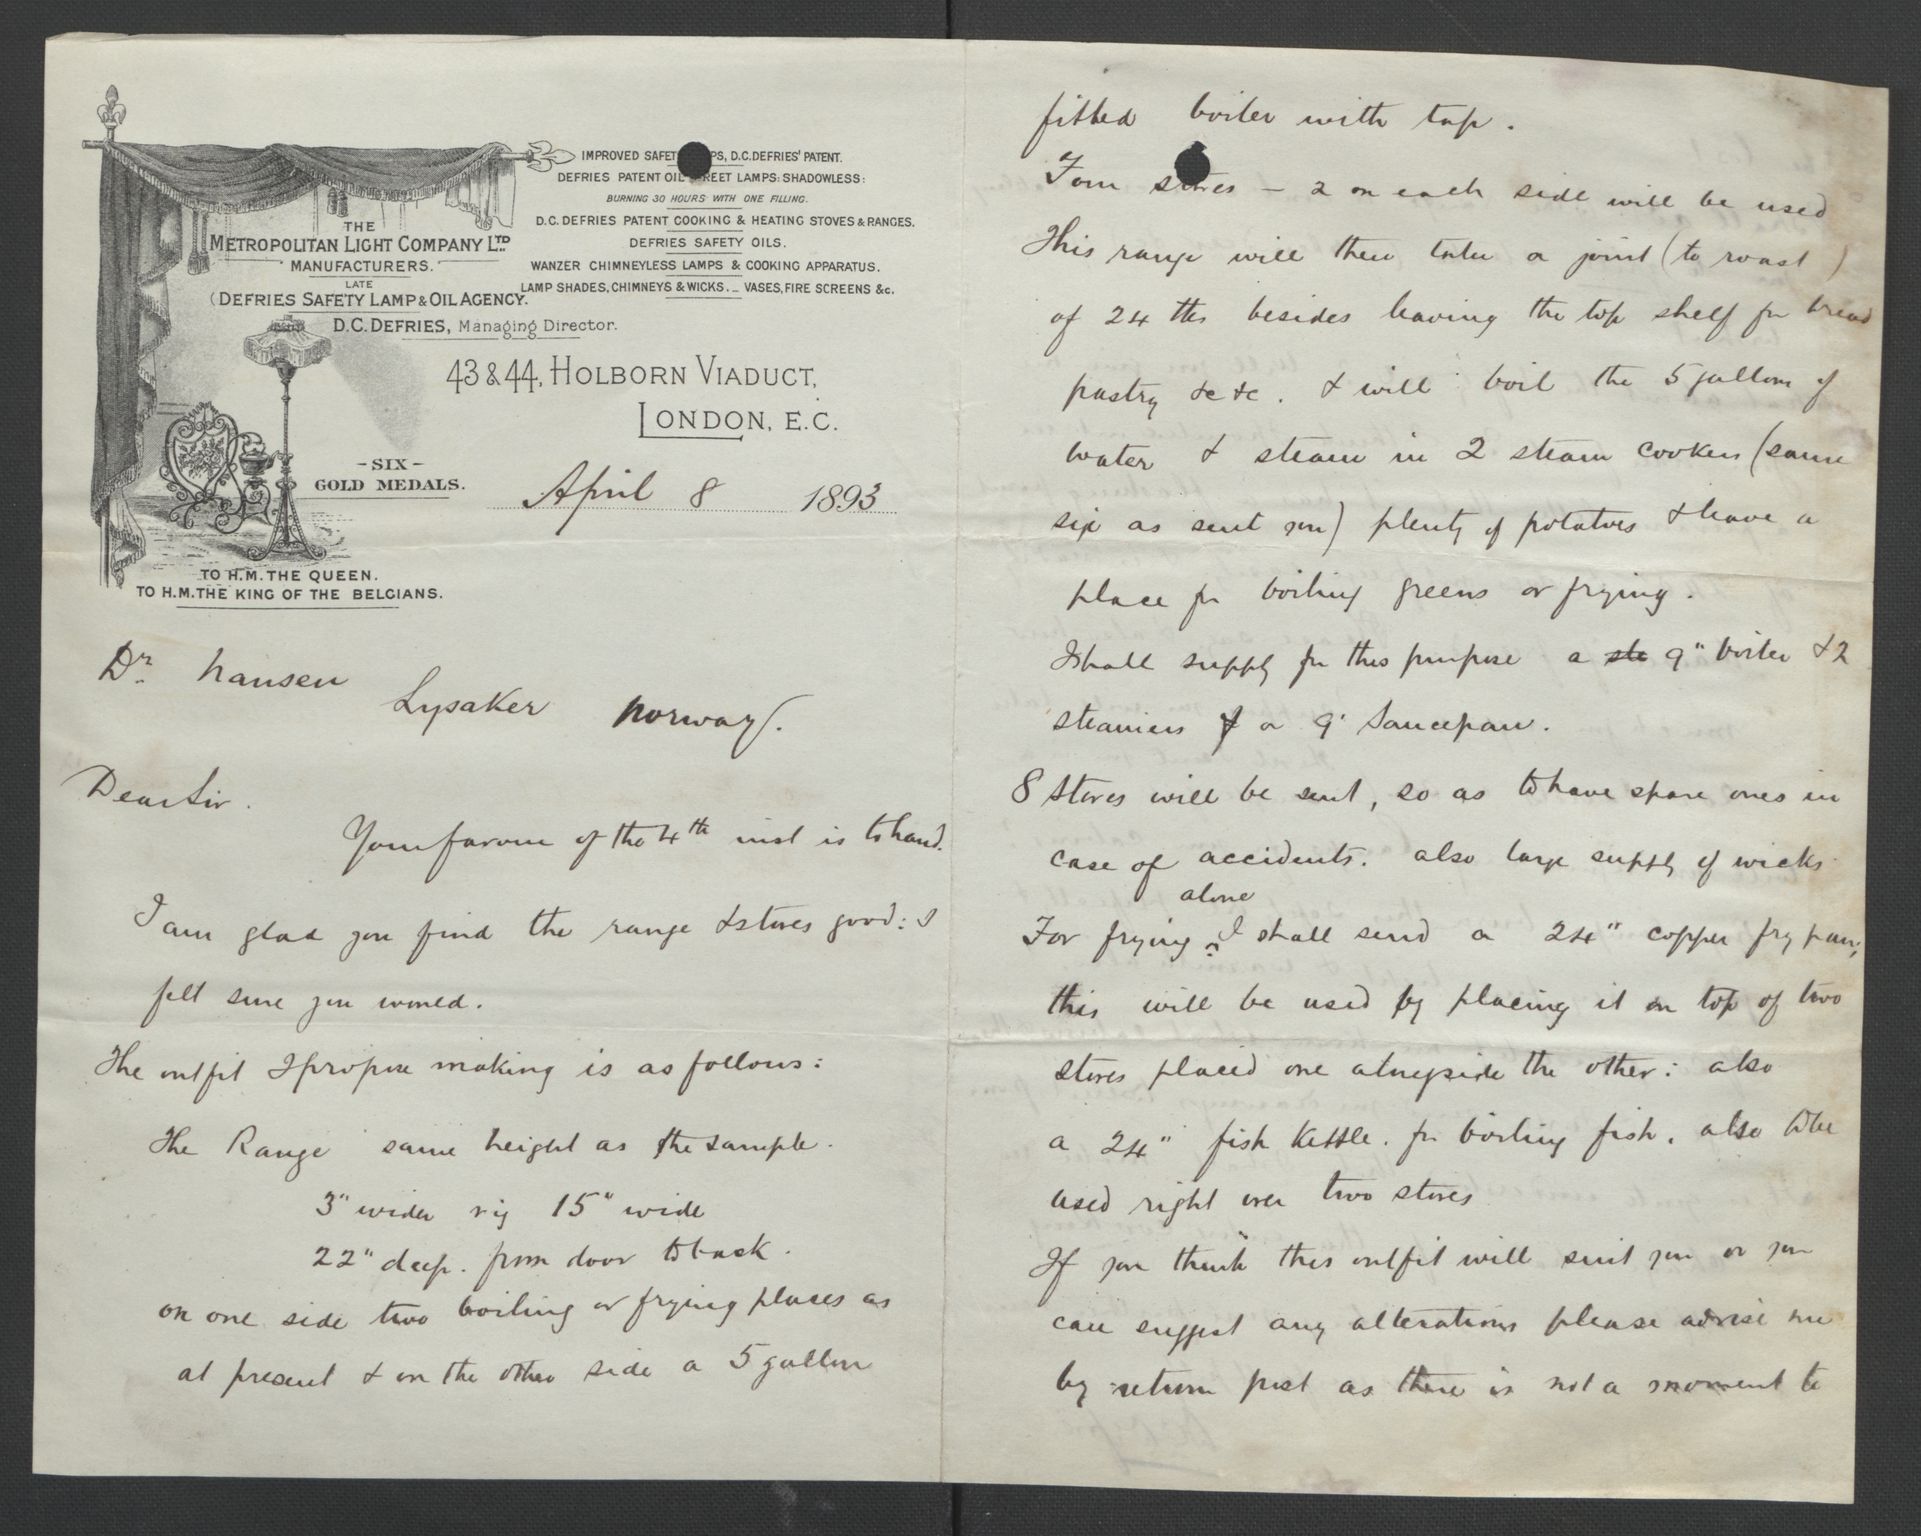 IMPROVED SAFET PS, D.C. DEFRIES' PATENT.
DEFRIES PATENT OIL STREET LAMPS: SHADOWLESS:
BURNING 30 HOURS WITH ONE FILLING.
D.C. DEFRIES PATENT COOKING & HEATING STOVES & RANGES.
DEFRIES SAFETY OILS.
WANZER CHIMNEYLESS LAMPS & COOKING APPARATUS.
LAMP SHADES, CHIMNEYS & WICKS. _ VASES, FIRE SCREENS &c.
THE
METROPOLITAN LIGHT COMPANY LTD
MANUFACTURERS.
LATE
(DEFRIES SAFETY LAMP & OIL AGENCY.
D.C. DEFRIES, Managing Director.
43 & 44, HOLBORN VIADUCT,
LONDON, E.C.
- SIX -
GOLD MEDALS.
April 8 1893
TO H.M. THE QUEEN.
TO H.M. THE KING OF THE BELGIANS.
Dr. Nansen
Lysaker Norway.
Dear Sir.
Your favour of the 4th inst is to hand.
I am glad you find the range & stoves good: I
felt sure you would.
The outfit I propose making is as follows:
The Range same height as the sample.
3" wider viz 15" wide
22" deep. from door to back.
on one side two boiling or frying places as
at present & on the other side a 5 gallon
fitted boiler with tap.
Four stoves - 2 on each side will be used
This range will then take a joint (to roast)
of 24 lbs besides leaving the top shelf for bread
pastry &c &c. & will boil the 5 gallons of
water & steam in 2 steam cookers (same
size as sent you) plenty of potatoes & leave a
place for boiling greens or frying.
I shall supply for this purpose a ste 9" boiler & 2
steamers & a 9" Saucepan.
8 stoves will be sent, so as to have spare ones in
case of accidents. also large supply of wicks
alone
For frying ^ I shall send a 24" copper fry pan;
this will be used by placing it on top of two
stoves placed one alongside the other: also
a 24" fish Kettle. for boiling fish. also to be
used right over two stoves
If you think this outfit will suit you or you
can suggest any alterations please advise me
by return post as there is not a moment to